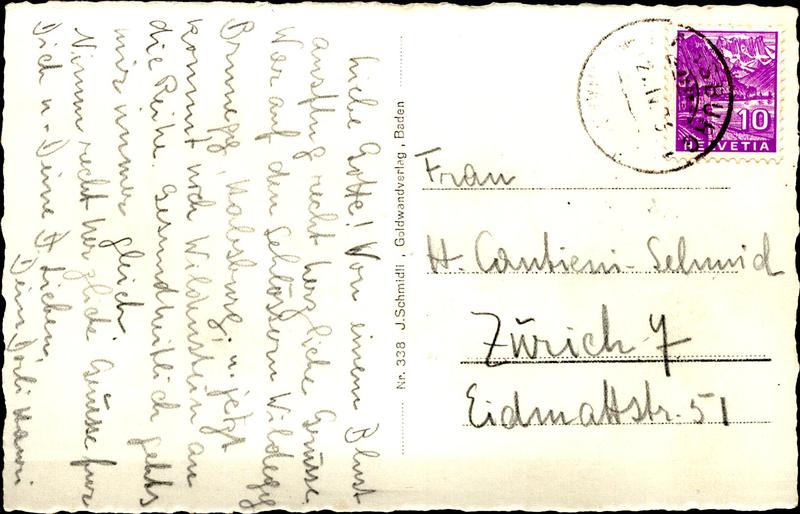 Liebe Gotte! Von einem Blust
ausflug recht herzliche Grüsse.
War auf den Schlössern Wildegg
Brunegg, Habsburg, u. jetzt
kommt noch Wildenstein an
die Reihe. Gesundheitlich gehts
mir immer gleich.
Nimm recht herzliche Grüsse für
Dich u. Deine Lieben,
Dein
Nr. 338 J. Schmidli, Goldwandverlag, Baden
10
HELVETIA
Frau
H. Cantieni-Schmid
Zürich 7
Eidmattstr. 51